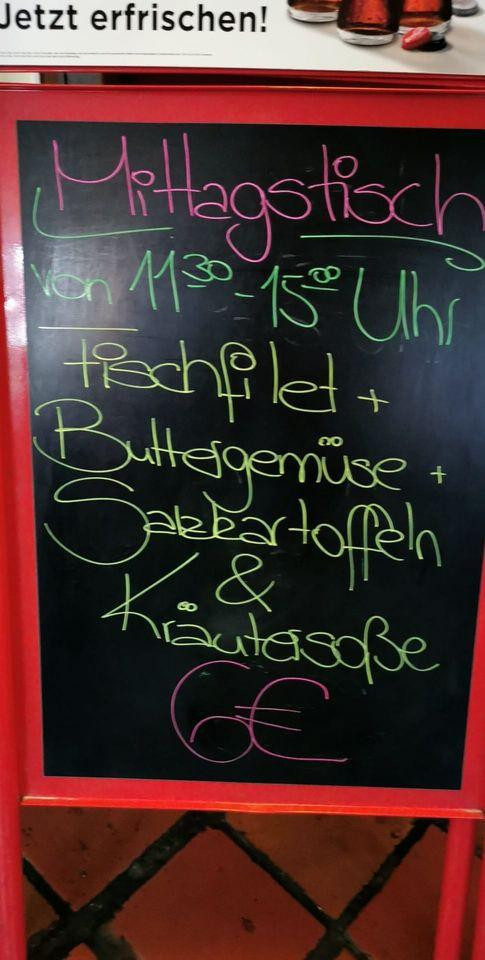 Jetzt erfrischen!
Mittagstisch
von 11 30 - 15 00 Uhr
Fischfilet +
Buttergemüse +
Salzkartoffeln
&
Kräutersoße
6€